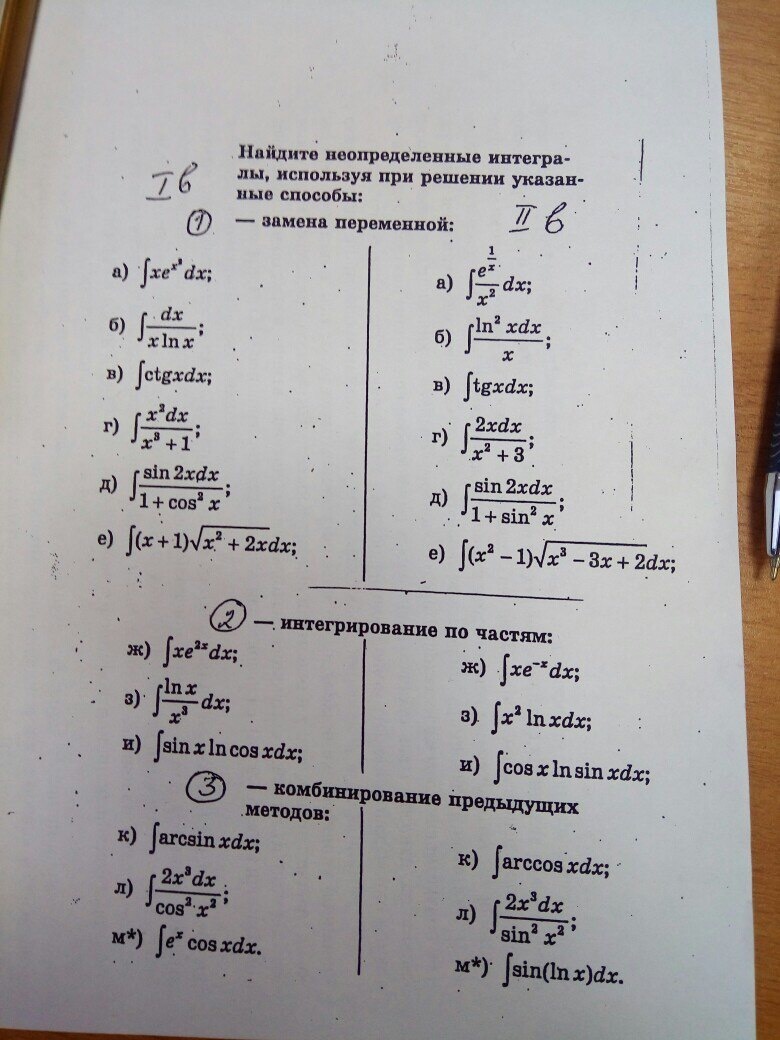 Найдите неопределенные интегра-
лы, используя при решении указан-
ные способы:
I в
① — замена переменной:
II в
а) ∫xeˣ³dx;
б) ∫dx/(x ln x);
в) ∫ctgxdx;
г) ∫x²dx/(x³ + 1);
д) ∫sin 2xdx/(1 + cos² x);
е) ∫(x + 1)√(x² + 2x)dx;
а) ∫e^(1/x)/x² dx;
б) ∫ln² xdx/x;
в) ∫tgxdx;
г) ∫2xdx/(x² + 3);
д) ∫sin 2xdx/(1 + sin² x);
е) ∫(x² − 1)√(x³ − 3x + 2)dx;
② — интегрирование по частям:
ж) ∫xe²ˣdx;
з) ∫ln x/x³ dx;
и) ∫sin x ln cos xdx;
ж) ∫xe⁻ˣdx;
з) ∫x² ln xdx;
и) ∫cos x ln sin xdx;
③ — комбинирование предыдущих
методов:
к) ∫arcsin xdx;
л) ∫2x³dx/(cos² x²);
м*) ∫eˣ cos xdx.
к) ∫arccos xdx;
л) ∫2x³dx/(sin² x²);
м*) ∫sin(ln x)dx.